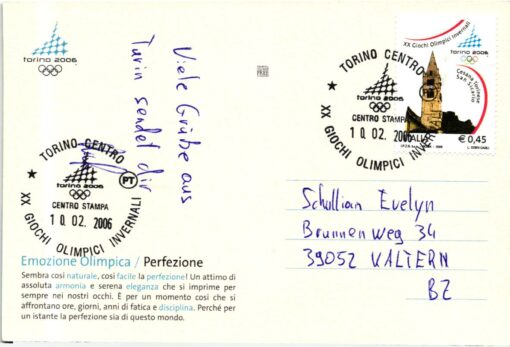 torino 2006
Viele Grüße aus
Turin sendet dir
TORINO CENTRO
torino 2006
CENTRO STAMPA
10.02.2006
XX GIOCHI OLIMPICI INVERNALI
PT
Emozione Olimpica / Perfezione
Sembra così naturale, così facile la perfezione! Un attimo di
assoluta armonia e serena eleganza che si imprime per
sempre nei nostri occhi. E per un momento così che si
affrontano ore, giorni, anni di fatica e disciplina. Perché per
un istante la perfezione sia di questo mondo.
TORINO CENTRO
torino 2006
CENTRO STAMPA
10.02.2006
XX GIOCHI OLIMPICI INVERNALI
XX Giochi Olimpici Invernali
torino 2006
Cesana Torinese
San Sicario
ITALIA
€ 0,45
Schullian Evelyn
Brunnenweg 34
39052 KALTERN
BZ